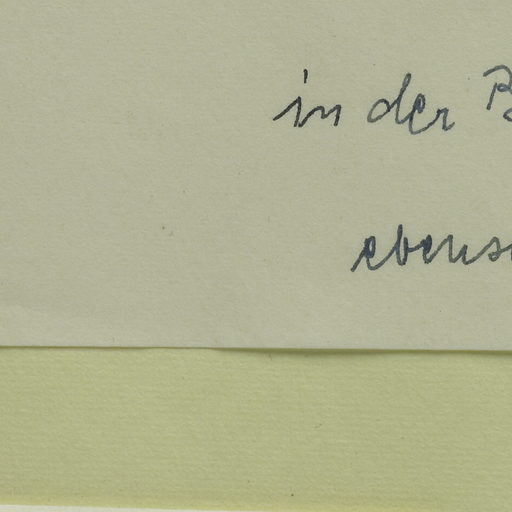 in der
ebenso